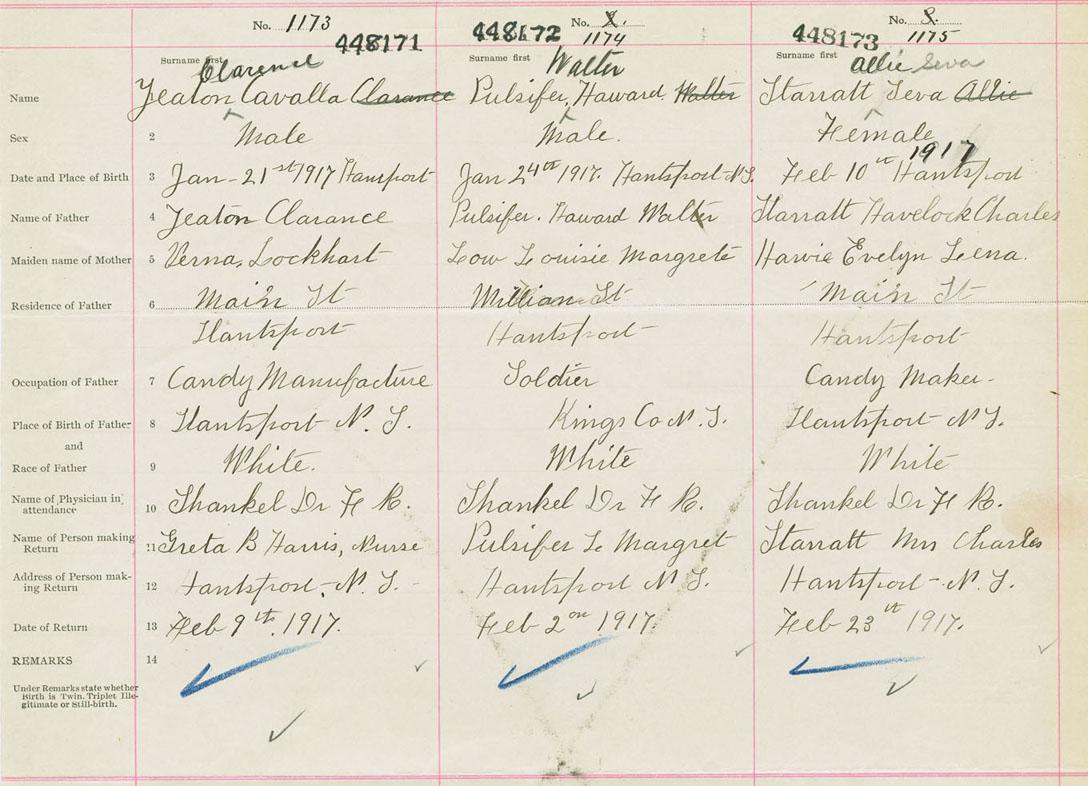 No. 1173
448171
448172
No. 8.
1174
448173
No. 8.
1175
Surname first
Surname first
Surname first
Clarence
Walter
Allie Seva
Name
Yeaton Cavalla Clarance
Pulsifer, Haward Walter
Starratt Seva Allie
Sex 2 Male
Male.
Female
Date and Place of Birth 3 Jan - 21st 1917 Hansport
Jan 24th 1917. Hantsport-N.S.
Feb 10th 1917 Hantsport
Name of Father 4 Yeaton Clarance
Pulsifer. Haward Walter
Starratt Havelock Charles
Maiden name of Mother 5 Verna, Lockhart
Low Louisie Margrete
Harvie Evelyn Leena.
Residence of Father 6 Main St
William St
Main St
Hantsport
Hantsport
Hantsport
Occupation of Father 7 Candy Manufacture
Soldier
Candy Maker-
Place of Birth of Father 8 Hantsport N. S.
Kings Co N. S.
Hantsport N S.
and
Race of Father 9 White.
White
White
Name of Physician in attendance 10 Shankel Dr F R.
Shankel Dr F R.
Shankel Dr F R.
Name of Person making Return 11 Greta B Harris, Nurse
Pulsifer L Margret
Starratt Mrs Charles
Address of Person making Return 12 Hantsport, N. S. -
Hantsport N S.
Hantsport - N. S.
Date of Return 13 Feb 9th. 1917.
Feb 2on 1917.
Feb 23 1917.
REMARKS 14
Under Remarks state whether
Birth is Twin. Triplet Ille-
gitimate or Still-birth.